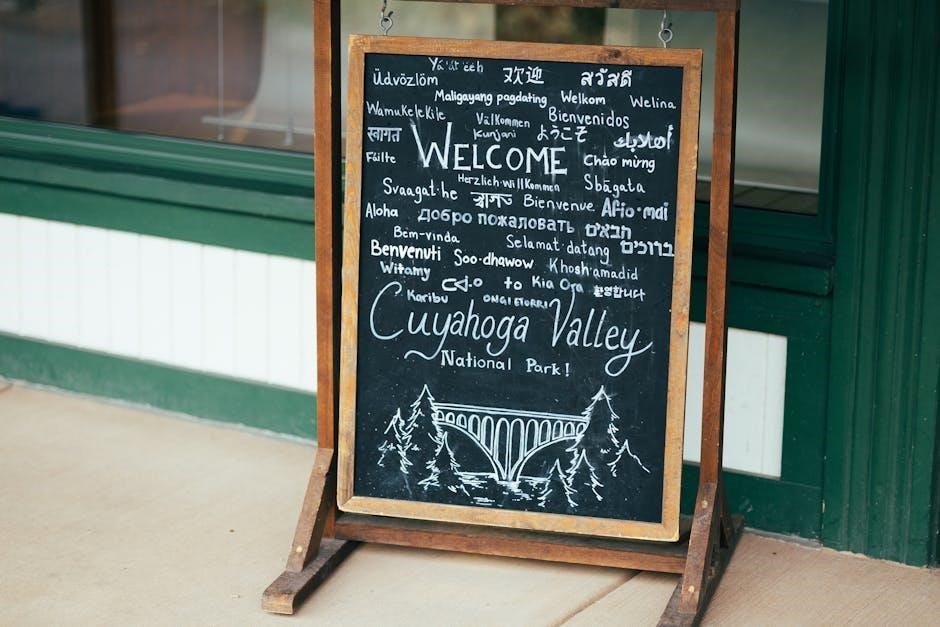 Yá'át'ééh
Üdvözlöm 欢迎 สวัสดี
Maligayang pagdating Welkom Welina
WamuKeleKile Välkommen Bienvenidos
स्वागत Kunjani ようこそ أهلا بك
Fáilte WELCOME Chào mừng
Herzlich willKommen Sbāgata
Svaagat he Bienvenue Afio mai
Aloha Добро пожаловать הבאים
Bem-vinda Selamat datang ברוכים
Benvenuti Soo-dhawow Khosh amadid
Witamy to Kia Ora 환영합니다
Karibu ONGI ETORRI
Cuyahoga Valley
National Park!